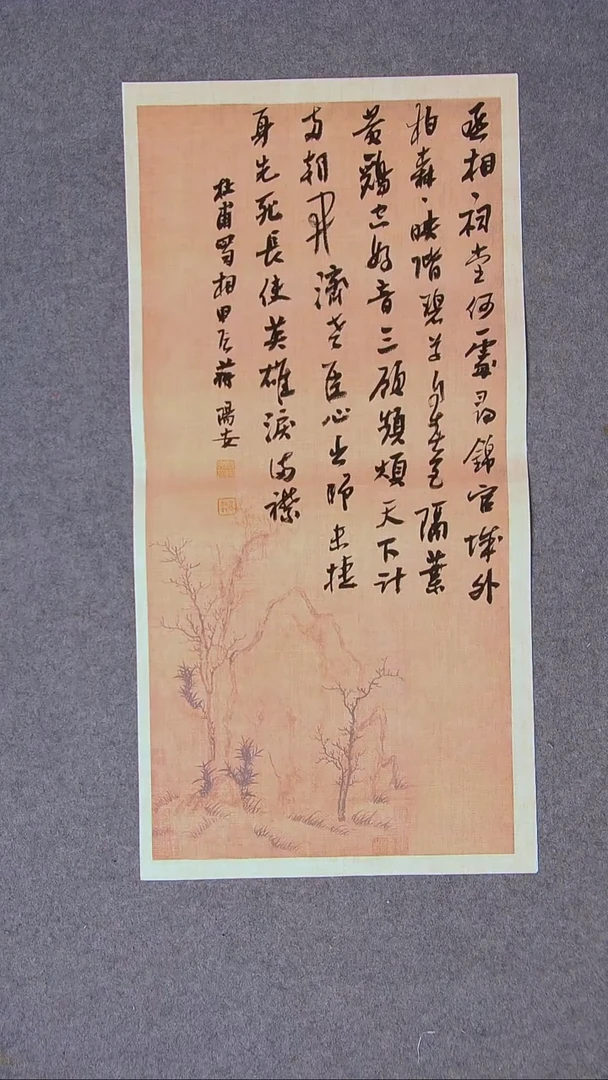 丞相祠堂何處尋錦官城外
柏森々映階碧草自春色隔葉
黃鸝空好音三顧頻煩天下計
兩朝開濟老臣心出師未捷
身先死長使英雄淚滿襟
杜甫蜀相甲辰蔣陽安